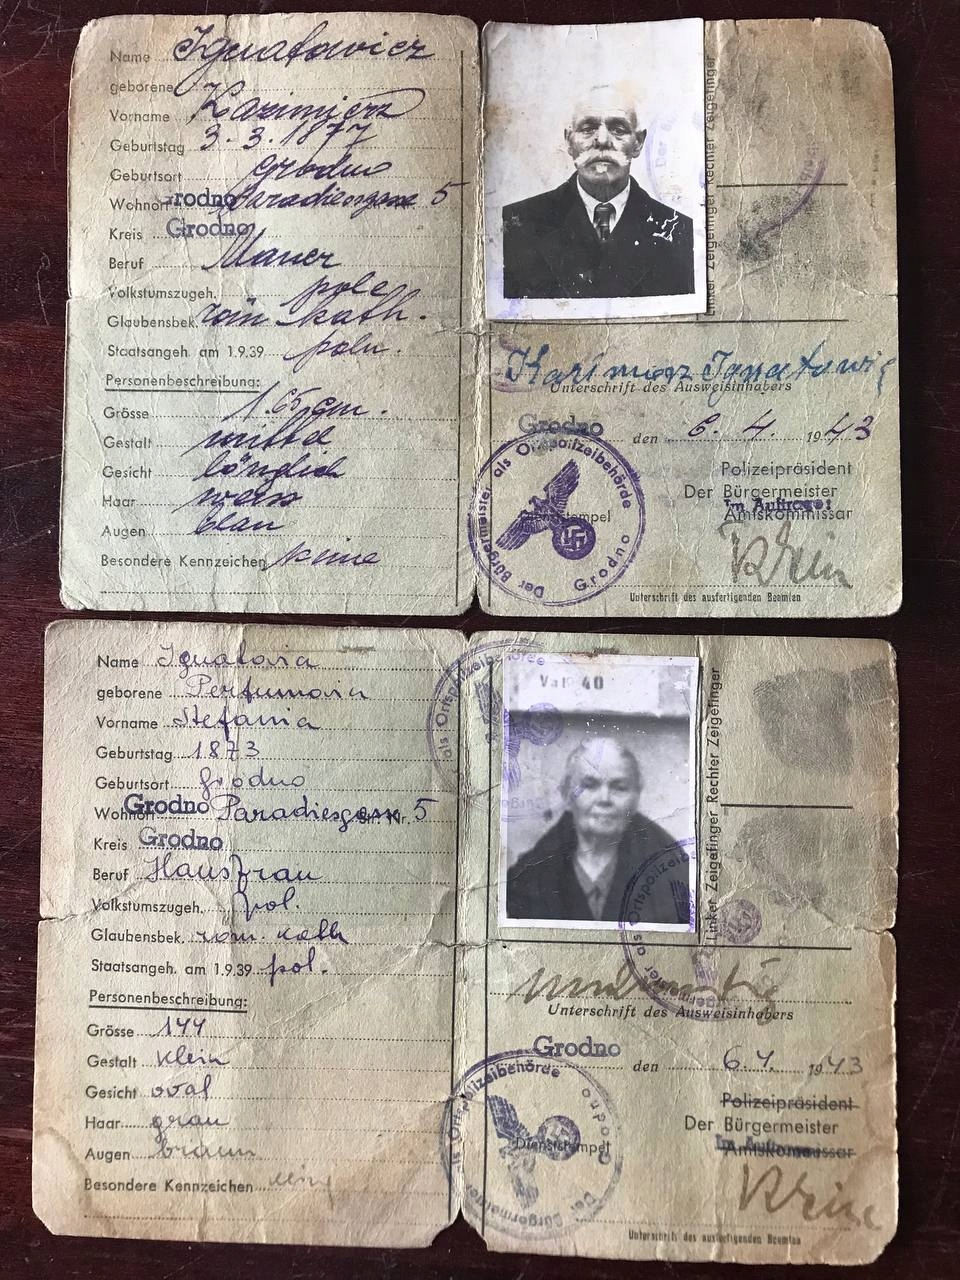 Name Ignatowicz
geborene
Vorname Kazimierz
Geburtstag 3.3.1877
Geburtsort Grodno
Wohnort Grodno Paradiesgasse 5
Kreis Grodno
Beruf Maurer
Volkstumszugeh. pole
Glaubensbek. röm kath.
Staatsangeh. am 1.9.39 poln.
Personenbeschreibung:
Grösse 1.65 cm.
Gestalt mittel
Gesicht länglich
Haar weiss
Augen blau
Besondere Kennzeichen keine
Linker Zeigefinger Rechter Zeigefinger
Kazimierz Ignatowicz
Unterschrift des Ausweisinhabers
Grodno den 6. 4. 1943
Polizeipräsident
Der Bürgermeister
Im Auftrage:
Amtskommissar
Dienststempel
Der Bürgermeister als Ortspolizeibehörde
Grodno
Unterschrift des ausfertigenden Beamten
Name Ignatowicz
geborene
Vorname Stefania
Geburtstag 1873
Geburtsort Grodno
Wohnort Grodno Paradiesgasse Nr. 5
Kreis Grodno
Beruf Hausfrau
Volkstumszugeh. pol.
Glaubensbek. röm. kath
Staatsangeh. am 1.9.39 pol.
Personenbeschreibung:
Grösse 144
Gestalt klein
Gesicht oval
Haar grau
Augen braun
Besondere Kennzeichen
als Ortspolizeibehörde
40
Linker Zeigefinger Rechter Zeigefinger
Bürgermeister als Ortspolizeibehörde
Unterschrift des Ausweisinhabers
Grodno den 6.4. 1943
Polizeipräsident
Der Bürgermeister
Im Auftrage:
Amtskommissar
Dienststempel
Der Bürgermeister als Ortspolizeibehörde
Grodno
Unterschrift des ausfertigenden Beamten